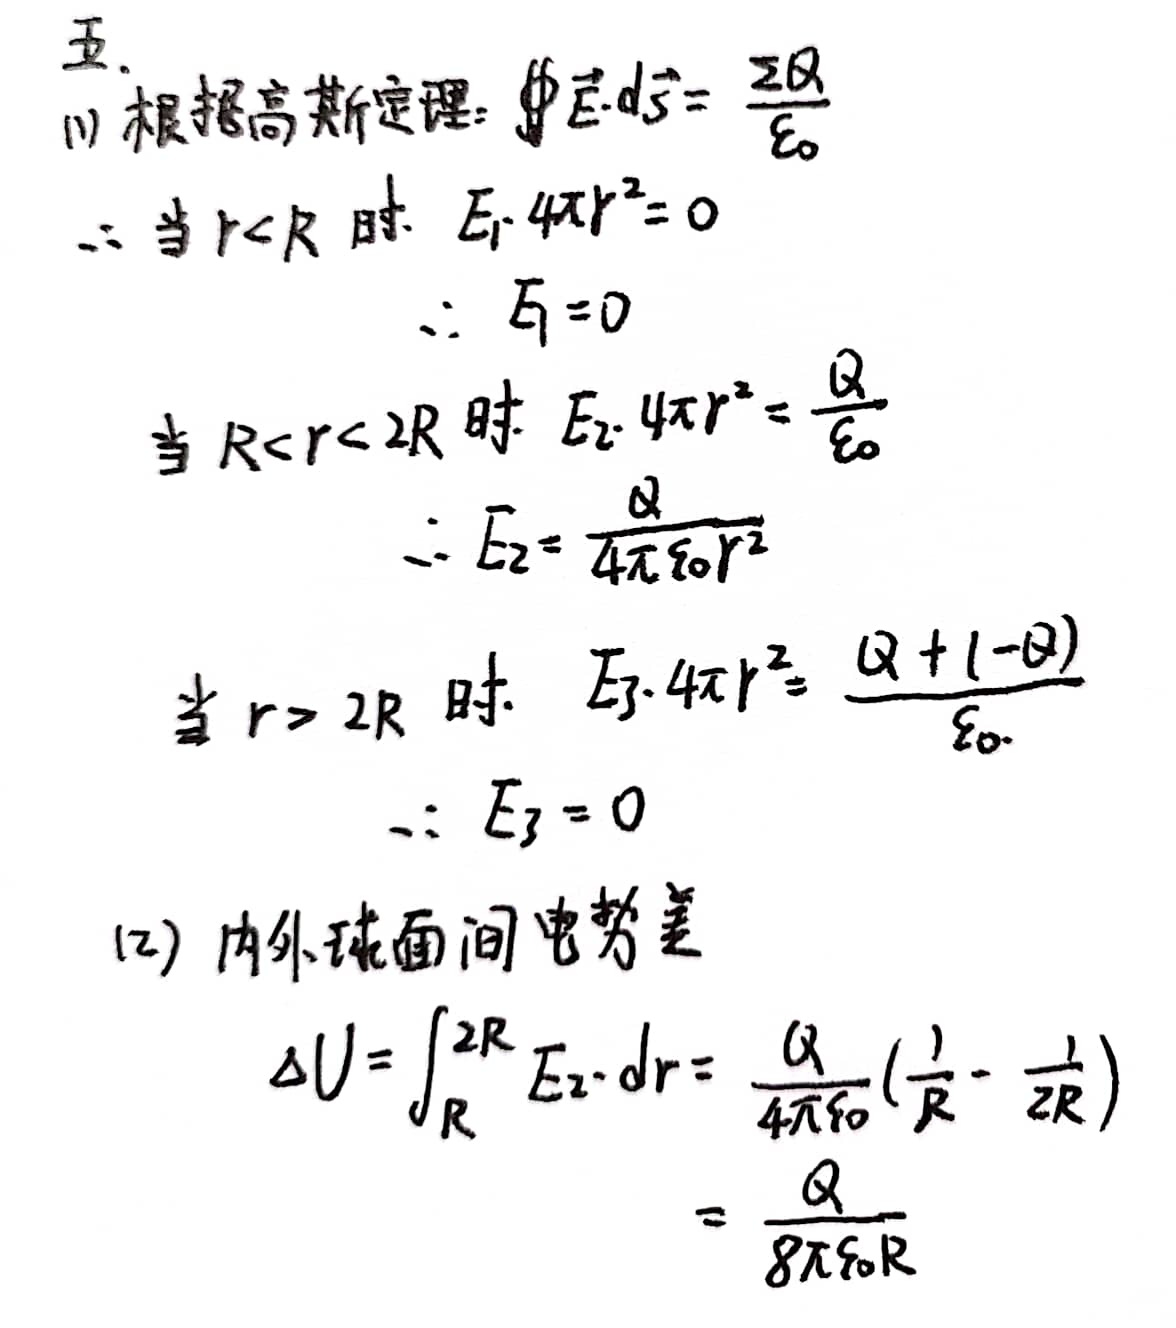 五.
(1) 根据高斯定理: ∯E⃗·dS⃗ = ΣQ/ε₀
∴ 当 r<R 时. E₁·4πr² = 0
∴ E₁ = 0
当 R<r<2R 时. E₂·4πr² = Q/ε₀
∴ E₂ = Q/(4πε₀r²)
当 r>2R 时. E₃·4πr² = (Q+(-Q))/ε₀.
∴ E₃ = 0
(2) 内外球面间电势差
ΔU = ∫_R^{2R} E₂·dr = Q/(4πε₀) (1/R - 1/2R)
= Q/(8πε₀R)